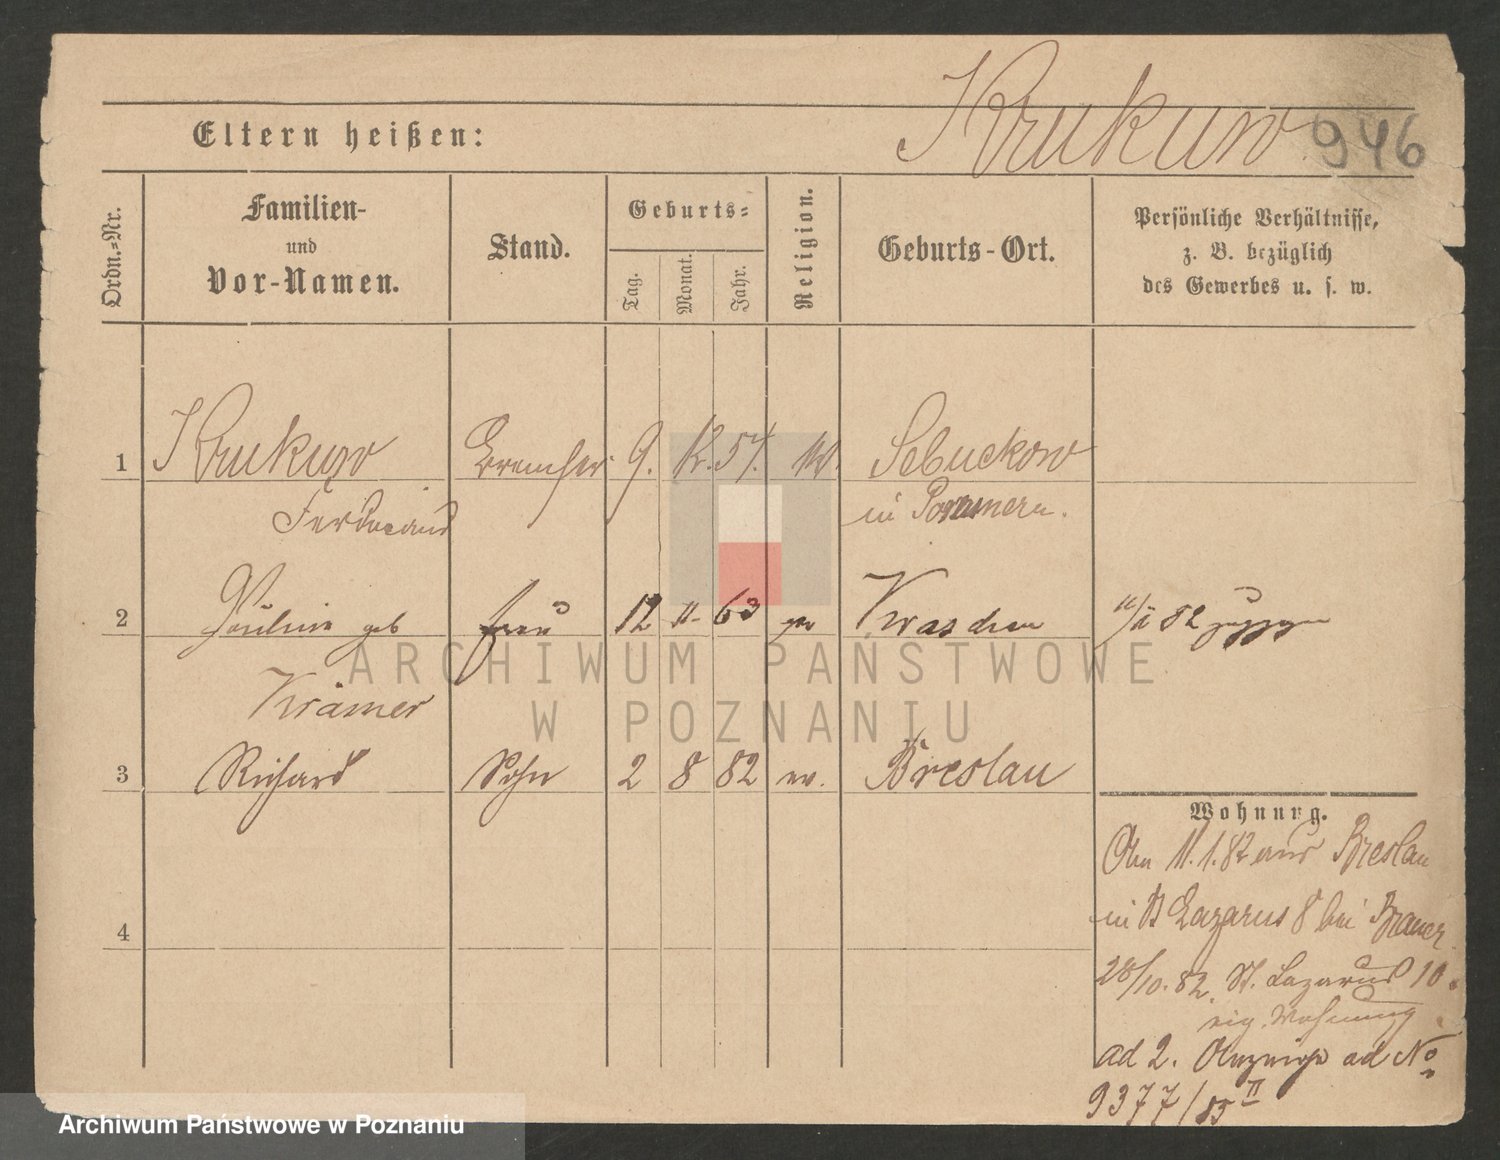 Krukuw 946
Eltern heißen:
Ordn.=Nr.
Familien-
und
Vor-Namen.
Stand.
Geburts=
Tag.
Monat.
Jahr.
Religion.
Geburts-Ort.
Persönliche Verhältnisse,
z. B. bezüglich
des Gewerbes u. s. w.
1 Krukuw 9. 12. 57. Sebuckow
Ferdinand in Pommern.
2 Pauline geb Frau 12 11. 63 Kraschen 82
Krämer
3 Richard Sohn 2 8 82 ev. Breslau
Wohnung.
11. 1. 82 aus Breslau
in St Lazarus 8 bei Brauer
28/10. 82. St. Lazarus 10.
eig. Wohnung
4
ad 2. Anzeige ad No
9377/85 II
ARCHIWUM PAŃSTWOWE
W POZNANIU
Archiwum Państwowe w Poznaniu